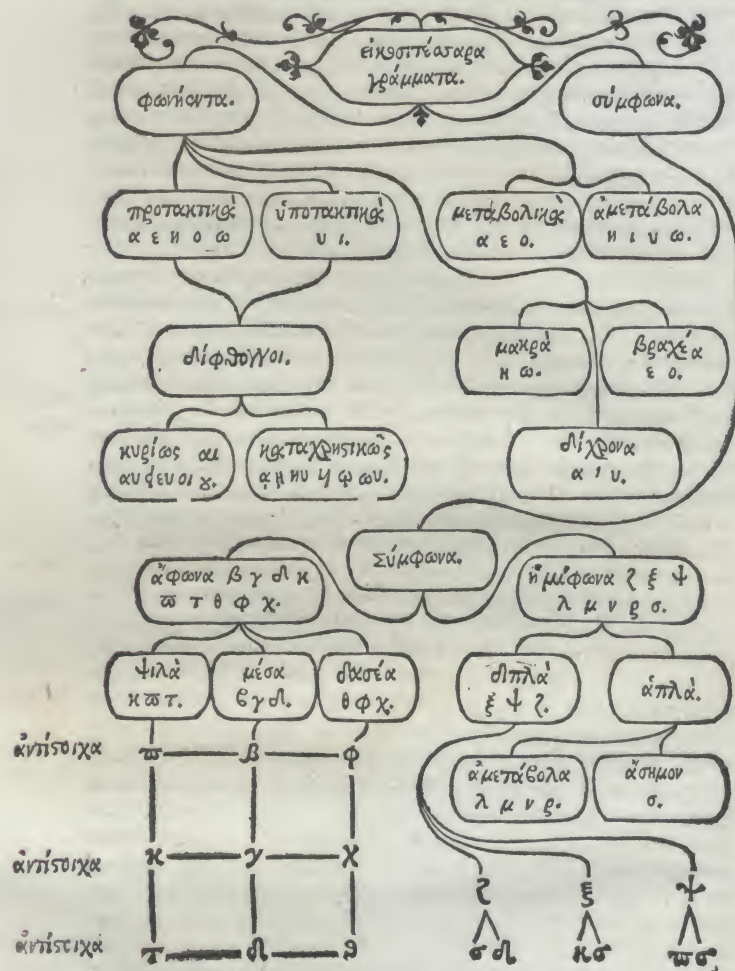 εἰκοσιτέσσαρα
γράμματα.
φωνήεντα.
σύμφωνα.
προτακτικὰ
α ε η ο ω
ὑποτακτικὰ
υ ι.
μεταβολικὰ
α ε ο.
ἀμετάβολα
η ι υ ω.
δίφθογγοι.
μακρὰ
η ω.
βραχέα
ε ο.
κυρίως αι
αυ ει ευ οι ου.
καταχρηστικῶς
ᾳ ῃ ηυ ῳ ωυ.
δίχρονα
α ι υ.
Σύμφωνα.
ἄφωνα β γ δ κ
π τ θ φ χ.
ἡμίφωνα ζ ξ ψ
λ μ ν ρ σ.
ψιλὰ
κ π τ.
μέσα
β γ δ.
δασέα
θ φ χ.
διπλὰ
ξ ψ ζ.
ἁπλὰ.
ἀμετάβολα
λ μ ν ρ.
ἄσημον
σ.
ἀντίστοιχα π β φ
ἀντίστοιχα κ γ χ
ἀντίστοιχα τ δ θ
ζ ξ ψ
σ δ κ σ π σ